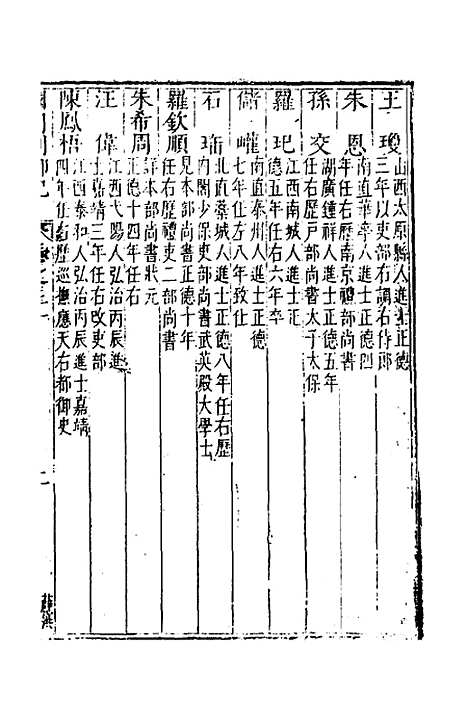 王瓊山西太原縣人進士正德
三年以吏部右調右侍郎
朱恩南直華亭人進士正德四
年任右歷南京禮部尚書
孫交湖廣鍾祥人進士正德五年
任右歷戶部尚書太子太保
羅玘江西南城人進士正
德五年任右六年卒
儲巏南直泰州人進士正德
七年任左八年致仕
石珤北直藁城人進士正德八年任右歷
內閣少保吏部尚書武英殿大學士
羅欽順見本部尚書正德十年
任右歷禮吏二部尚書
朱希周詳本部尚書狀元
正德十四年任右
汪偉江西弋陽人弘治丙辰進
士嘉靖三年任右改吏部
陳鳳梧江西泰和人弘治丙辰進士嘉靖
四年任右歷巡撫應天右都御史